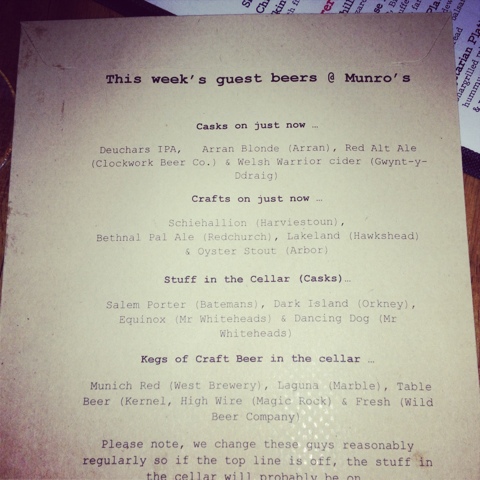 This week's guest beers @ Munro's
Casks on just now …
Deuchars IPA, Arran Blonde (Arran), Red Alt Ale
(Clockwork Beer Co.) & Welsh Warrior cider (Gwynt-y-
Ddraig)
Crafts on just now …
Schiehallion (Harviestoun),
Bethnal Pal Ale (Redchurch), Lakeland (Hawkshead)
& Oyster Stout (Arbor)
Stuff in the Cellar (Casks)…
Salem Porter (Batemans), Dark Island (Orkney),
Equinox (Mr Whiteheads) & Dancing Dog (Mr
Whiteheads)
Kegs of Craft Beer in the cellar …
Munich Red (West Brewery), Laguna (Marble), Table
Beer (Kernel, High Wire (Magic Rock) & Fresh (Wild
Beer Company)
Please note, we change these guys reasonably
regularly so if the top line is off, the stuff in
the cellar will probably be on